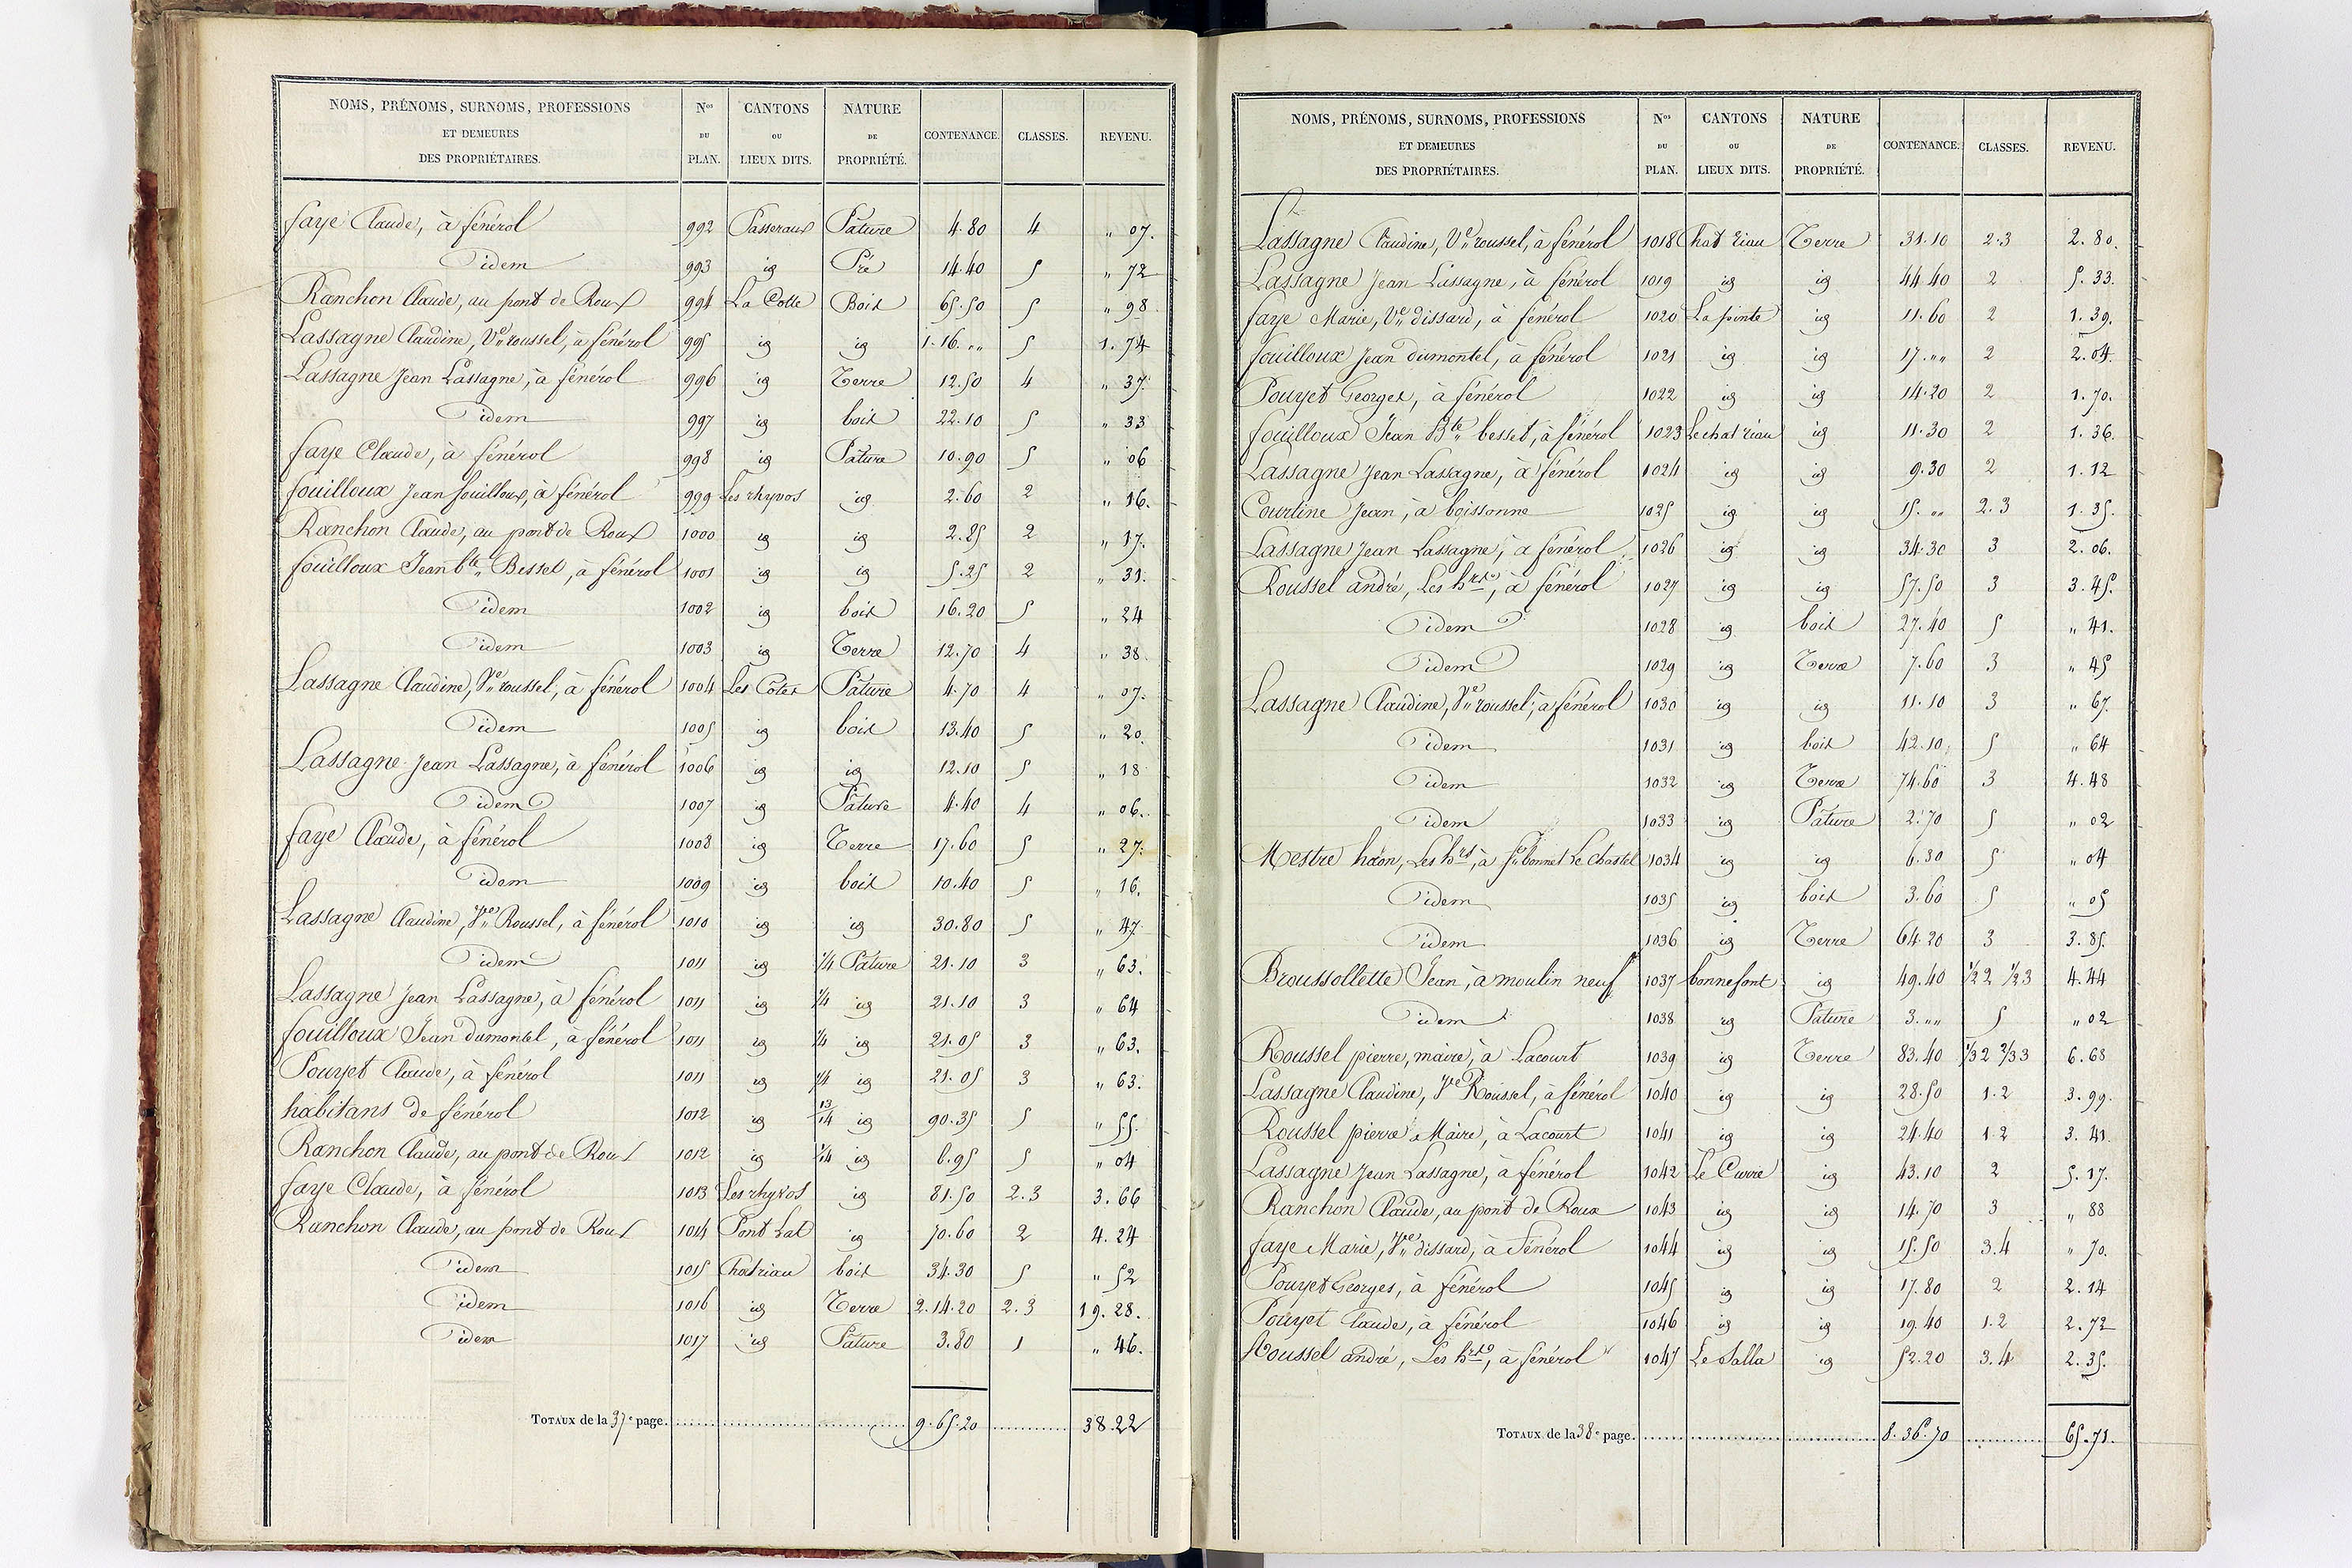 NOMS, PRÉNOMS, SURNOMS, PROFESSIONS ET DEMEURES DES PROPRIÉTAIRES. Nos DU PLAN. CANTONS OU LIEUX DITS. NATURE DE PROPRIÉTÉ. CONTENANCE. CLASSES. REVENU.
faye Claude, à fénérol 992 Passeraux Pature 4.80 4 " 07.
idem 993 id Pré 14.40 5 " 72
Ranchon Claude, au pont de Roux 994 La Côte Bois 65.50 5 " 98
Lassagne Claudine, Ve roussel, à fénérol 995 id id 1.16. " " 5 1.74
Lassagne Jean Lassagne, à fénérol 996 id Terre 12.50 4 " 37.
idem 997 id bois 22.10 5 " 33
faye Claude, à fénérol 998 id Pature 10.90 5 " 06
fouilloux Jean fouilloux, à fénérol 999 Les rhyvos id 2.60 2 " 16.
Ranchon Claude, au pont de Roux 1000 id id 2.85 2 " 17.
fouilloux Jean bte Besset, à fénérol 1001 id id 5.25 2 " 31.
idem 1002 id bois 16.20 5 " 24
idem 1003 id Terre 12.70 4 " 38.
Lassagne Claudine, Ve roussel, à fénérol 1004 Les Côtes Pature 4.70 4 " 07.
idem 1005 id bois 13.40 5 " 20.
Lassagne Jean Lassagne, à fénérol 1006 id id 12.10 5 " 18
idem 1007 id Pature 4.40 4 " 06.
faye Claude, à fénérol 1008 id Terre 17.60 5 " 27.
idem 1009 id bois 10.40 5 " 16.
Lassagne Claudine, Vve Roussel, à fénérol 1010 id id 30.80 5 " 47.
idem 1011 id 1/4 Pature 21.10 3 " 63.
Lassagne Jean Lassagne, à fénérol 1011 id 1/4 id 21.10 3 " 64
fouilloux Jean dumontel, à fénérol 1011 id 1/4 id 21.05 3 " 63.
Pouyet Claude, à fénérol 1011 id 1/4 id 21.05 3 " 63.
habitans de fénérol 1012 id 13/14 id 90.35 5 " 55.
Ranchon Claude, au pont de Roux 1012 id 1/14 id 6.95 5 " 04
faye Claude, à fénérol 1013 Les rhyvos id 81.50 2.3 3.66
Ranchon Claude, au pont de Roux 1014 Pont Lat id 70.60 2 4.24
idem 1015 Chatriau bois 34.30 5 " 52
idem 1016 id Terre 2.14.20 2.3 19.28.
idem 1017 id Pature 3.80 1 " 46.
TOTAUX de la 37e page. 9.65.20 38.22
NOMS, PRÉNOMS, SURNOMS, PROFESSIONS ET DEMEURES DES PROPRIÉTAIRES. Nos DU PLAN. CANTONS OU LIEUX DITS. NATURE DE PROPRIÉTÉ. CONTENANCE. CLASSES. REVENU.
Lassagne Claudine, Ve roussel, à fénérol 1018 Chat riau Terre 31.10 2.3 2.80.
Lassagne Jean Lassagne, à fénérol 1019 id id 44.40 2 5.33.
faye Marie, Ve dissard, à fénérol 1020 La pointe id 11.60 2 1.39.
fouilloux Jean dumontel, à fénérol 1021 id id 17. " " 2 2.04.
Pouyet Georges, à fénérol 1022 id id 14.20 2 1.70.
fouilloux Jean Bte besset, à fénérol 1023 Le chat riau id 11.30 2 1.36.
Lassagne Jean Lassagne, à fénérol 1024 id id 9.30 2 1.12
Courtine Jean, à boissonne 1025 id id 15. " " 2.3 1.35.
Lassagne Jean Lassagne, à fénérol 1026 id id 34.30 3 2.06.
Roussel andré, Les hrs, à fénérol 1027 id id 57.50 3 3.45.
idem 1028 id bois 27.40 5 " 41.
idem 1029 id Terre 7.60 3 " 45
Lassagne Claudine, Ve roussel, à fénérol 1030 id id 11.10 3 " 67.
idem 1031 id bois 42.10 5 " 64
idem 1032 id Terre 74.60 3 4.48
idem 1033 id Pature 2.70 5 " 02
Mestre haon, Les hrs, à St bonnet Le chastel 1034 id id 6.30 5 " 04
idem 1035 id bois 3.60 5 " 05
idem 1036 id Terre 64.20 3 3.85.
Broussollette Jean, à moulin neuf 1037 bonnefont id 49.40 1/2 2 1/2 3 4.44
idem 1038 id Pature 3. " " 5 " 02
Roussel pierre, maire, à Lacourt 1039 id Terre 83.40 1/3 2 2/3 3 6.68
Lassagne Claudine, Vve Roussel, à fénérol 1040 id id 28.50 1.2 3.99.
Roussel pierre Maire, à Lacourt 1041 id id 24.40 1.2 3.41.
Lassagne Jean Lassagne, à fénérol 1042 Le Cuvre id 43.10 2 5.17.
Ranchon Claude, au pont de Roux 1043 id id 14.70 3 " 88
faye Marie, Vve dissard, à fénérol 1044 id id 15.50 3.4 " 70.
Pouyet Georges, à fénérol 1045 id id 17.80 2 2.14
Pouyet Claude, à fénérol 1046 id id 19.40 1.2 2.72
Roussel andré, Les hrs, à fénérol 1047 Le Salla id 52.20 3.4 2.35.
TOTAUX de la 38e page. 8.36.70 65.71.